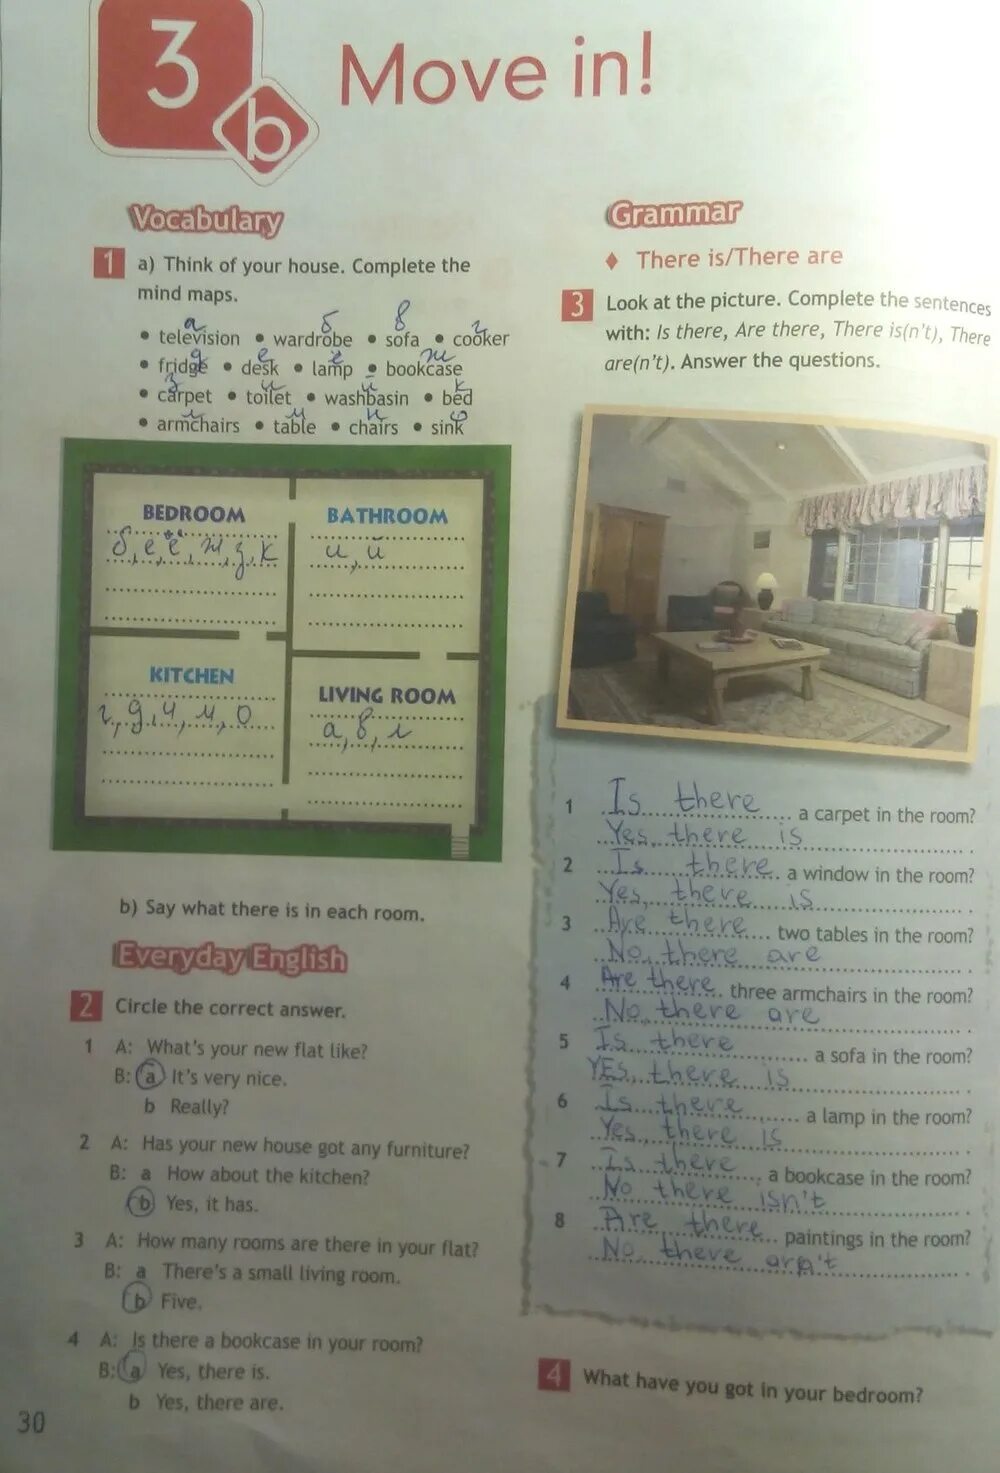 3 b Move in!
Vocabulary
1 a) Think of your house. Complete the
mind maps.
а б в г
• television • wardrobe • sofa • cooker
д е ё ж
• fridge • desk • lamp • bookcase
з и й к
• carpet • toilet • washbasin • bed
л м н
• armchairs • table • chairs • sink
BEDROOM
б, е, ё, ж, з, к
BATHROOM
и, й
KITCHEN
LIVING ROOM
а, в, л
b) Say what there is in each room.
Everyday English
2 Circle the correct answer.
1 A: What's your new flat like?
B: a It's very nice.
b Really?
2 A: Has your new house got any furniture?
B: a How about the kitchen?
b Yes, it has.
3 A: How many rooms are there in your flat?
B: a There's a small living room.
b Five.
4 A: Is there a bookcase in your room?
B: a Yes, there is.
b Yes, there are.
30
Grammar
♦ There is/There are
3 Look at the picture. Complete the sentences
with: Is there, Are there, There is(n't), There
are(n't). Answer the questions.
1 Is there a carpet in the room?
Yes, there is
2 Is there a window in the room?
Yes, there is
3 Are there two tables in the room?
No, there are
4 Are there three armchairs in the room?
No, there are
5 Is there a sofa in the room?
YEs, there is
6 Is there a lamp in the room?
Yes, there is
7 Is there a bookcase in the room?
No there isn't
8 Are there paintings in the room?
No, there aren't
4 What have you got in your bedroom?